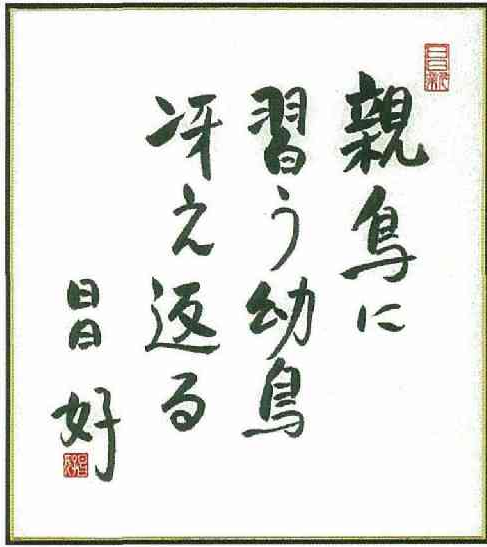 親鳥に
習う幼鳥
冴え返る
昌好